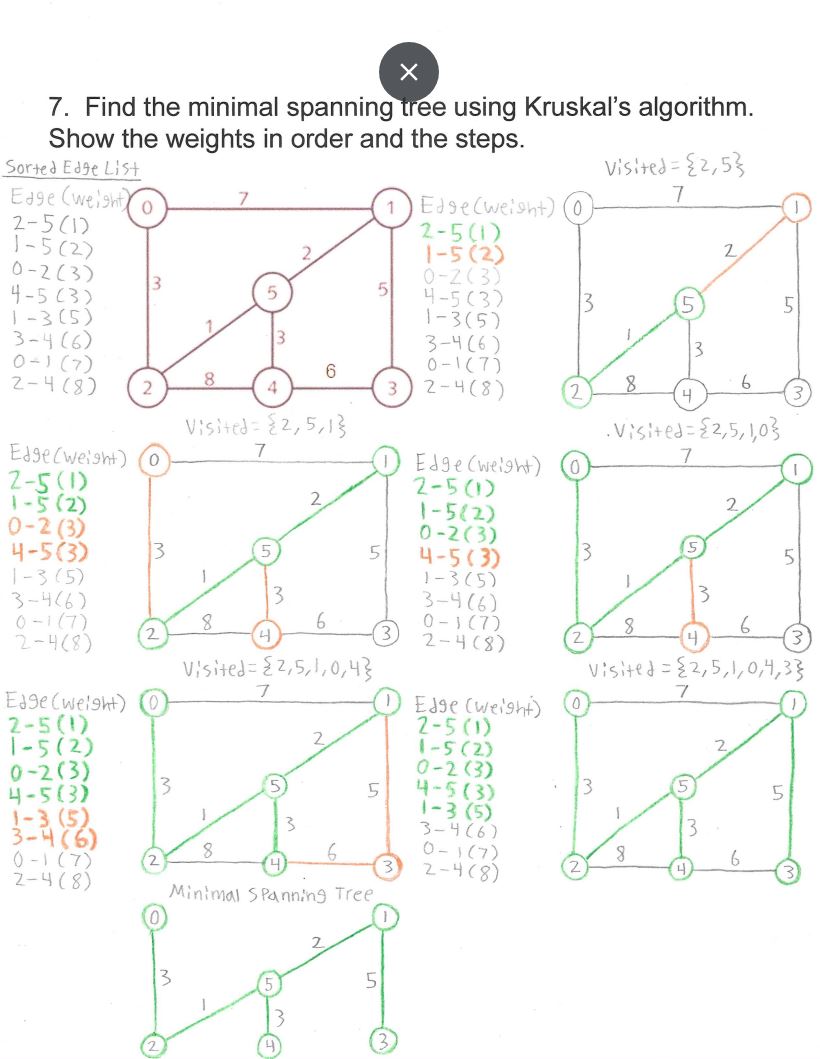 7. Find the minimal spanning tree using Kruskal's algorithm.
Show the weights in order and the steps.
Sorted Edge List
Edge (weight)
2-5(1)
1-5(2)
0-2(3)
4-5(3)
1-3(5)
3-4(6)
0-1(7)
2-4(8)
0 7 1
3 2 5
5
1 3
2 8 4 6 3
Visited = {2,5}
Edge (weight)
2-5(1)
1-5(2)
0-2(3)
4-5(3)
1-3(5)
3-4(6)
0-1(7)
2-4(8)
0 7 1
3 2 5
5
1 3
2 8 4 6 3
Visited = {2,5,1}
Edge (weight)
2-5(1)
1-5(2)
0-2(3)
4-5(3)
1-3(5)
3-4(6)
0-1(7)
2-4(8)
0 7 1
3 2 5
5
1 3
2 8 4 6 3
.Visited = {2,5,1,0}
Edge (weight)
2-5(1)
1-5(2)
0-2(3)
4-5(3)
1-3(5)
3-4(6)
0-1(7)
2-4(8)
0 7 1
3 2 5
5
1 3
2 8 4 6 3
Visited = {2,5,1,0,4}
Edge (weight)
2-5(1)
1-5(2)
0-2(3)
4-5(3)
1-3(5)
3-4(6)
0-1(7)
2-4(8)
0 7 1
3 2 5
5
1 3
2 8 4 6 3
Visited = {2,5,1,0,4,3}
Edge (weight)
2-5(1)
1-5(2)
0-2(3)
4-5(3)
1-3(5)
3-4(6)
0-1(7)
2-4(8)
0 7 1
3 2 5
5
1 3
2 8 4 6 3
Minimal Spanning Tree
0 1
3 2 5
5
1 3
2 4 3